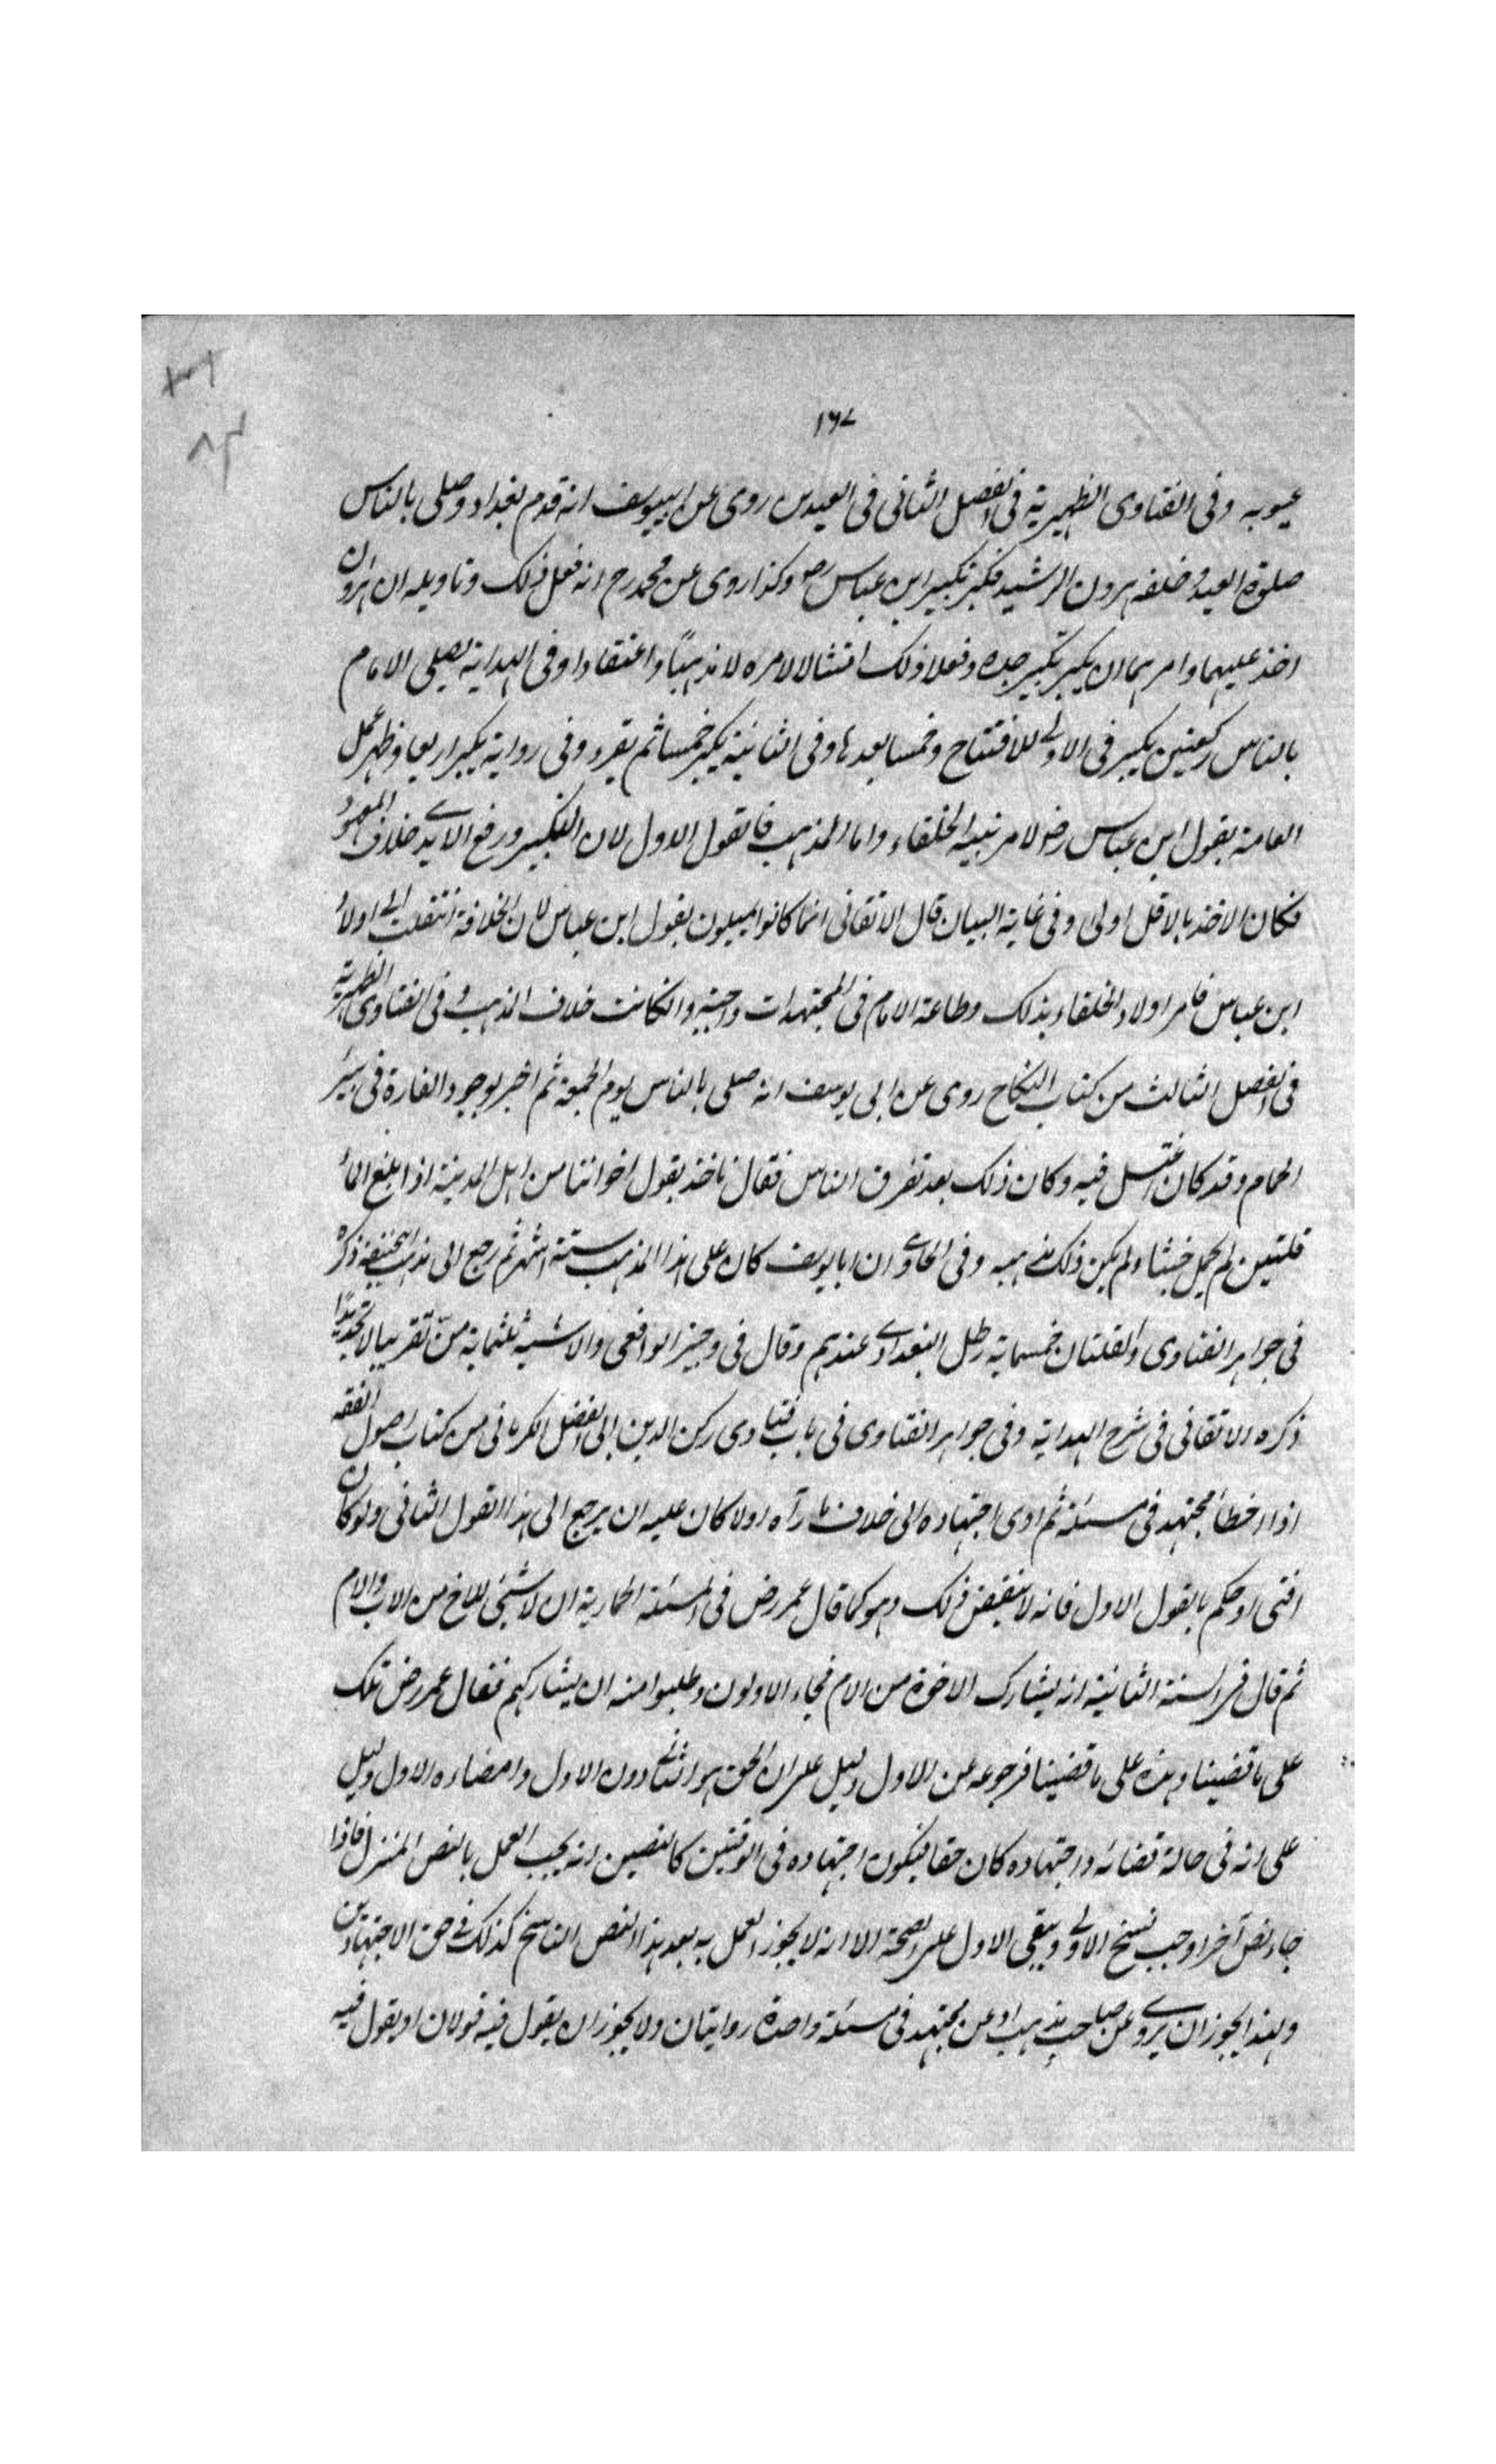 ١٦٧
عيوبه وفى الفتاوى الظهيرية فى الفصل الثانى فى العيدين روى عن ابيوسف انه قدم بغداد وصلى بالناس
صلوة العيد وخلفه هرون الرشيد فكبر تكبير ابن عباس رض وكذا روى عن محمد رح انه فعل ذلك وتاويله ان هرون
اخذ عليهما وامرهما ان يكبر تكبير جده وفعلا ذلك امتثالا لامره لا مذهبًا واعتقادا وفى الهداية يصلى الامام
بالناس ركعتين يكبر فى الاولى للافتتاح وخمسا بعدها وفى الثانية يكبر خمسا ثم يقرء وفى رواية يكبر اربعا وظهر عمل
العامة بقول ابن عباس رض لامر بنيه الخلفاء واما المذهب فالقول الاول لان التكبير ورفع الايدى خلاف المعهود
فكان الاخذ بالاقل اولى وفى غاية البيان قال الاتقانى انما كانوا يميلون بقول ابن عباس لان الخلافة انتقلت الى اولاد
ابن عباس فامر اولاد الخلفاء بذلك وطاعة الامام فى المجتهدات واجبة وانكانت خلاف المذهب وفى الفتاوى الظهيرية
فى الفصل الثالث من كتاب النكاح روى عن ابى يوسف انه صلى بالناس يوم الجمعة ثم اخبر بوجود الفارة فى بير
الحمام وقد كان اغتسل فيه وكان ذلك بعد تفرق الناس فقال ناخذ بقول اخواننا من اهل المدينة اذا بلغ الماء
قلتين لم يحمل خبثا ولم يكن ذلك مذهبه وفى الحاوى ان ابا يوسف كان على هذا المذهب ستة اشهر ثم رجع الى مذهب ابيحنيفة ذكره
فى جواهر الفتاوى والقلتان خمسماية رطل البغدادى عندهم وقال فى وجيز الرافعى والاشبه ثلثماية منّ تقريبا لا تحديدًا
ذكره الاتقانى فى شرح الهداية وفى جواهر الفتاوى فى باب فتاوى ركن الدين ابى الفضل الكرمانى من كتاب اصول الفقه
اذا اخطأ مجتهد فى مسئلة ثم ادى اجتهاده الى خلاف ما رآه اولا كان عليه ان يرجع الى هذا القول الثانى ولو كان
افتى او حكم بالقول الاول فانه لا ينقض ذلك وهو كما قال عمر رض فى المسئلة الحمارية ان لا شئ للاخ من الاب والام
ثم قال فى السنة الثانية انه يشارك الاخوة من الام فجاء الاولون وطلبوا منه ان يشاركهم فقال عمر رض تلك
على ما قضينا وهذه على ما قضينا فرجوعه عن الاول دليل على ان الحق هو الثانى دون الاول وامضاءه الاول دليل
على انه فى حالة قضائه واجتهاده كان حقا فيكون اجتهاده فى الوقتين كالنصين انه يجب العمل بالنص المنزل فاذا
جاء نص آخر اوجب نسخ الاولى ويبقى الاول على الصحة الا انه لا يجوز العمل به بعد هذا النص الناسخ كذلك فى حق الاجتهادين
ولهذا يجوز ان يروى عن صاحب مذهب او عن مجتهد فى مسئلة واحدة روايتان ولا يجوز ان يقول فيه قولان او يقول فيه